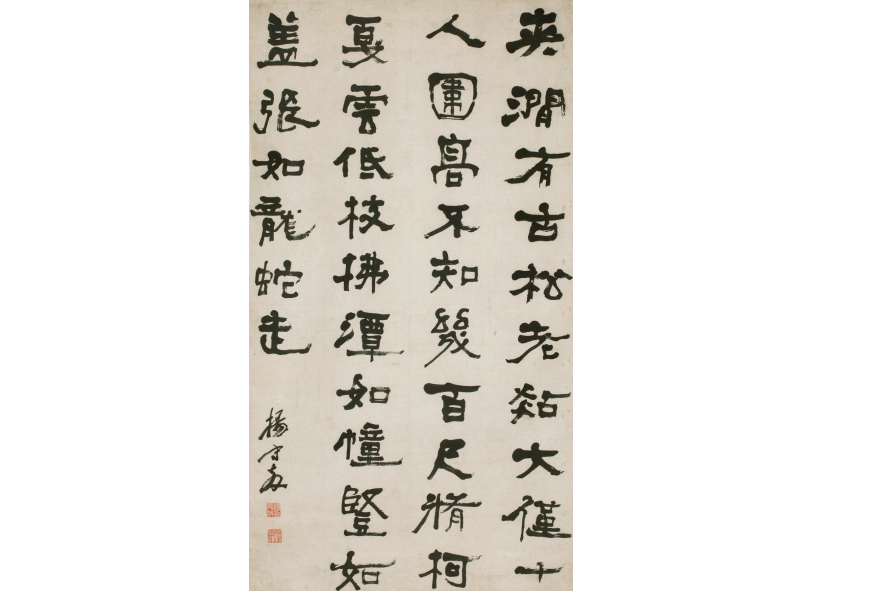 夾澗有古松老煔大僅十
人圍高不知幾百尺脩柯
戛雲低枝拂潭如幢竪如
盖張如龍蛇走
楊守敬